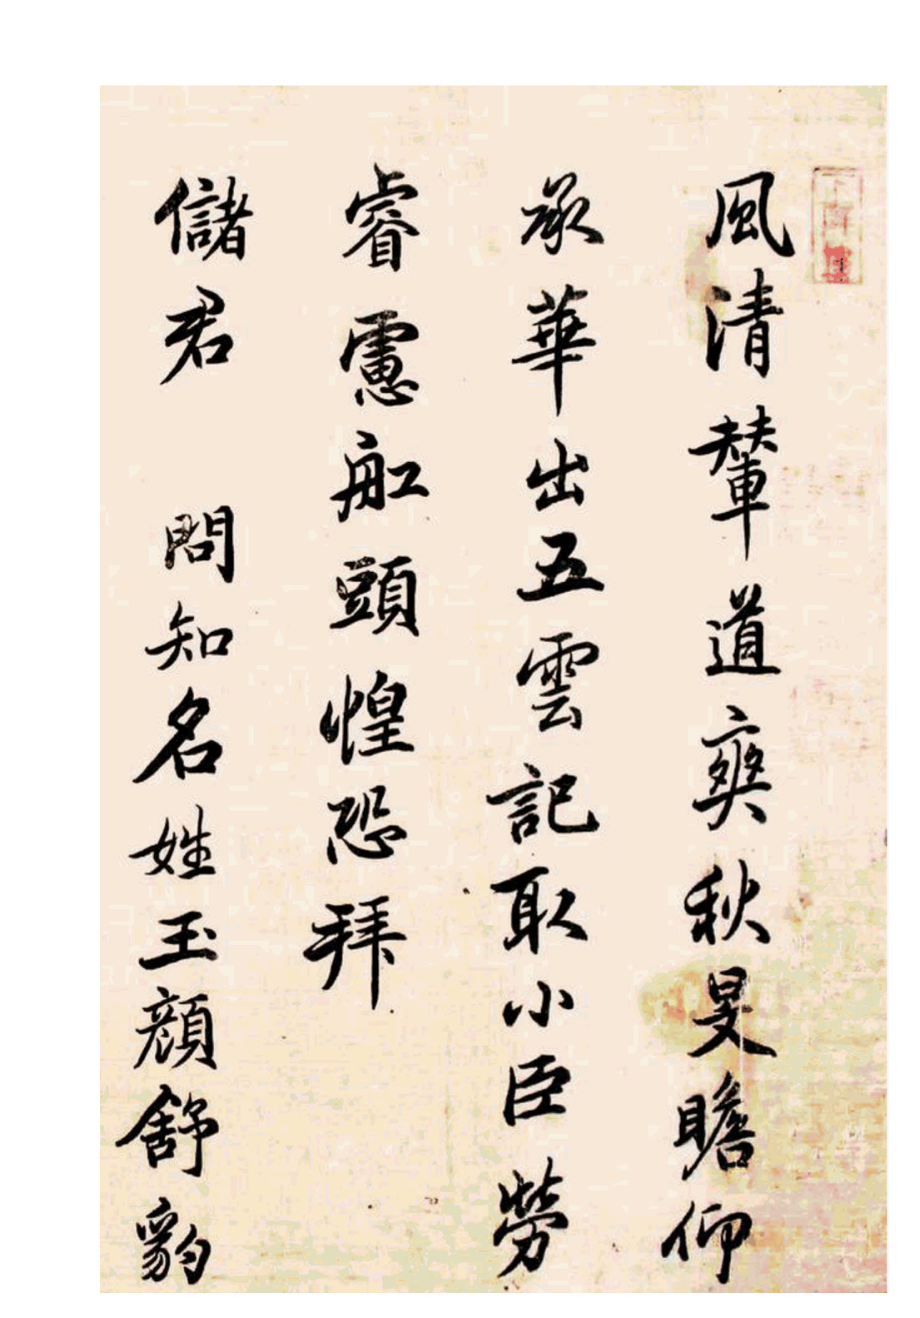 風清輦道爽秋旻瞻仰
承華出五雲記取小臣勞
睿慮舡頭惶恐拜
儲君 問知名姓玉顏舒豹